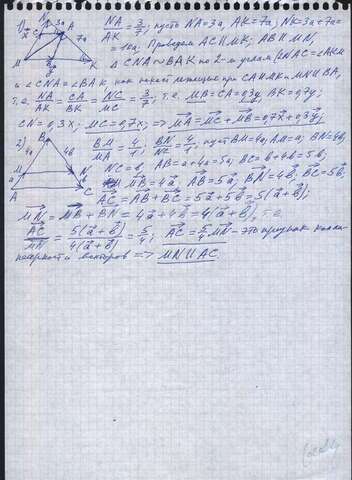 1) N 3a A 7a x C M B y K
NA/AK = 3/7; пусть NA=3a, AK=7a; NK=3a+7a=
=10a, Проведем AC||MK; AB||MN,
Δ CNA ~ BAK по 2-м углам (∠NAC=∠AKM
и ∠CNA=∠BAK как
лежащие при CA||MK и MN||BA,
т.е. NA/AK = CA/BK = NC/MC = 3/7; т.е. MB=CA=0,3y, BK=0,7y;
MC=0,7x; => MA=MC+MB=0,7x+0,3y;
2) B a 4a 4b M N b A C
BM/MA = 4/1; BN/NC = 4/1; пусть BM=4a; AM=a; BN=4b,
NC=b, AB=a+4a=5a; BC=b+4b=5b,
MB=4a; AB=5a; BN=4b, BC=5b,
AC=AB+BC=5a+5b=5(a+b);
MN=MB+BN=4a+4b=4(a+b), т.е.
AC/MN = 5(a+b)/4(a+b) = 5/4; AC=5/4 MN - это признак колли-
неарности векторов => MN||AC.